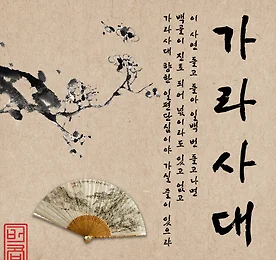 가라사대
이 사연 돌고 돌아 일백 번 돌고 나면
백골이 진토 되어 넋이라도 있고 없고
가라사대 향한 일편단심이야 가실 줄이 있으랴